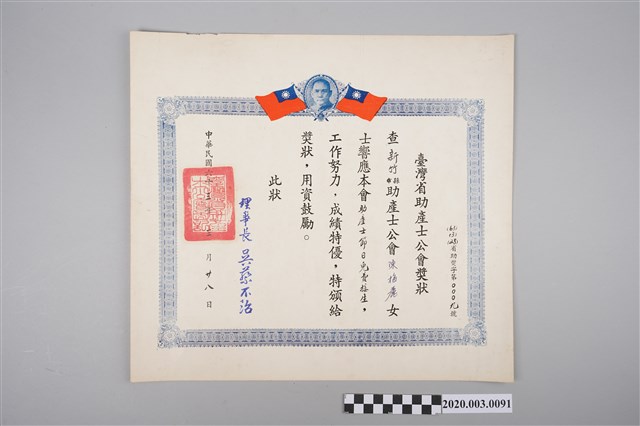 臺灣省助產士公會獎狀
省助獎字第000九號
查新竹縣助產士公會陳女
士響應本會助產士節日免費接生，
工作努力，成績特優，特頒給
獎狀，用資鼓勵。
此狀
理事長 吳蔡不治
中華民國 月廿八日
2020.003.0091